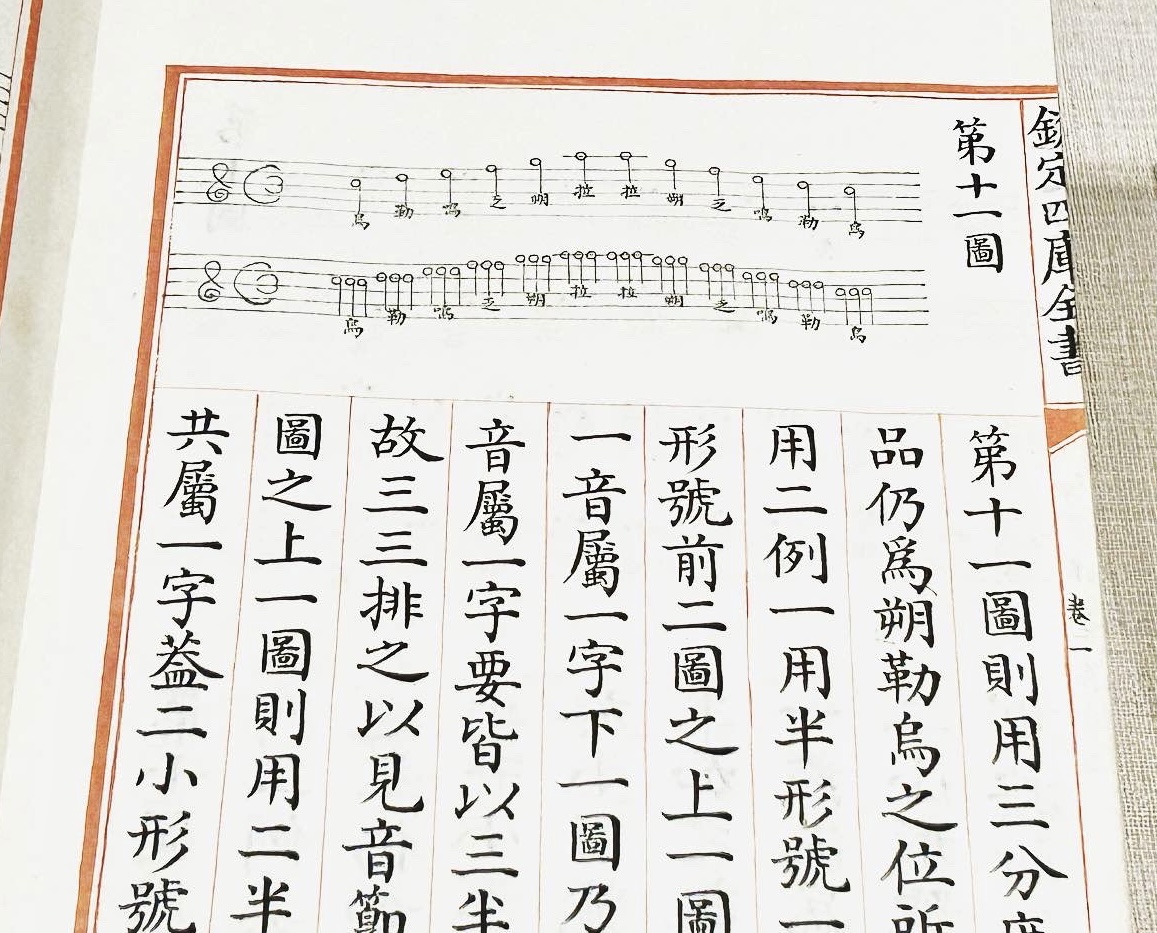 欽定四庫全書
卷
第十一圖
烏 勒 鳴 乏 朔 拉 拉 朔 乏 鳴 勒 烏
烏 勒 鳴 乏 朔 拉 拉 朔 乏 鳴 勒 烏
第十一圖則用三分
品仍爲朔勒烏之位所
用二例一用半形號一
形號前二圖之上一圖
一音屬一字下一圖乃
音屬一字要皆以三半
故三三排之以見音節
圖之上一圖則用二半
共屬一字葢二小形號